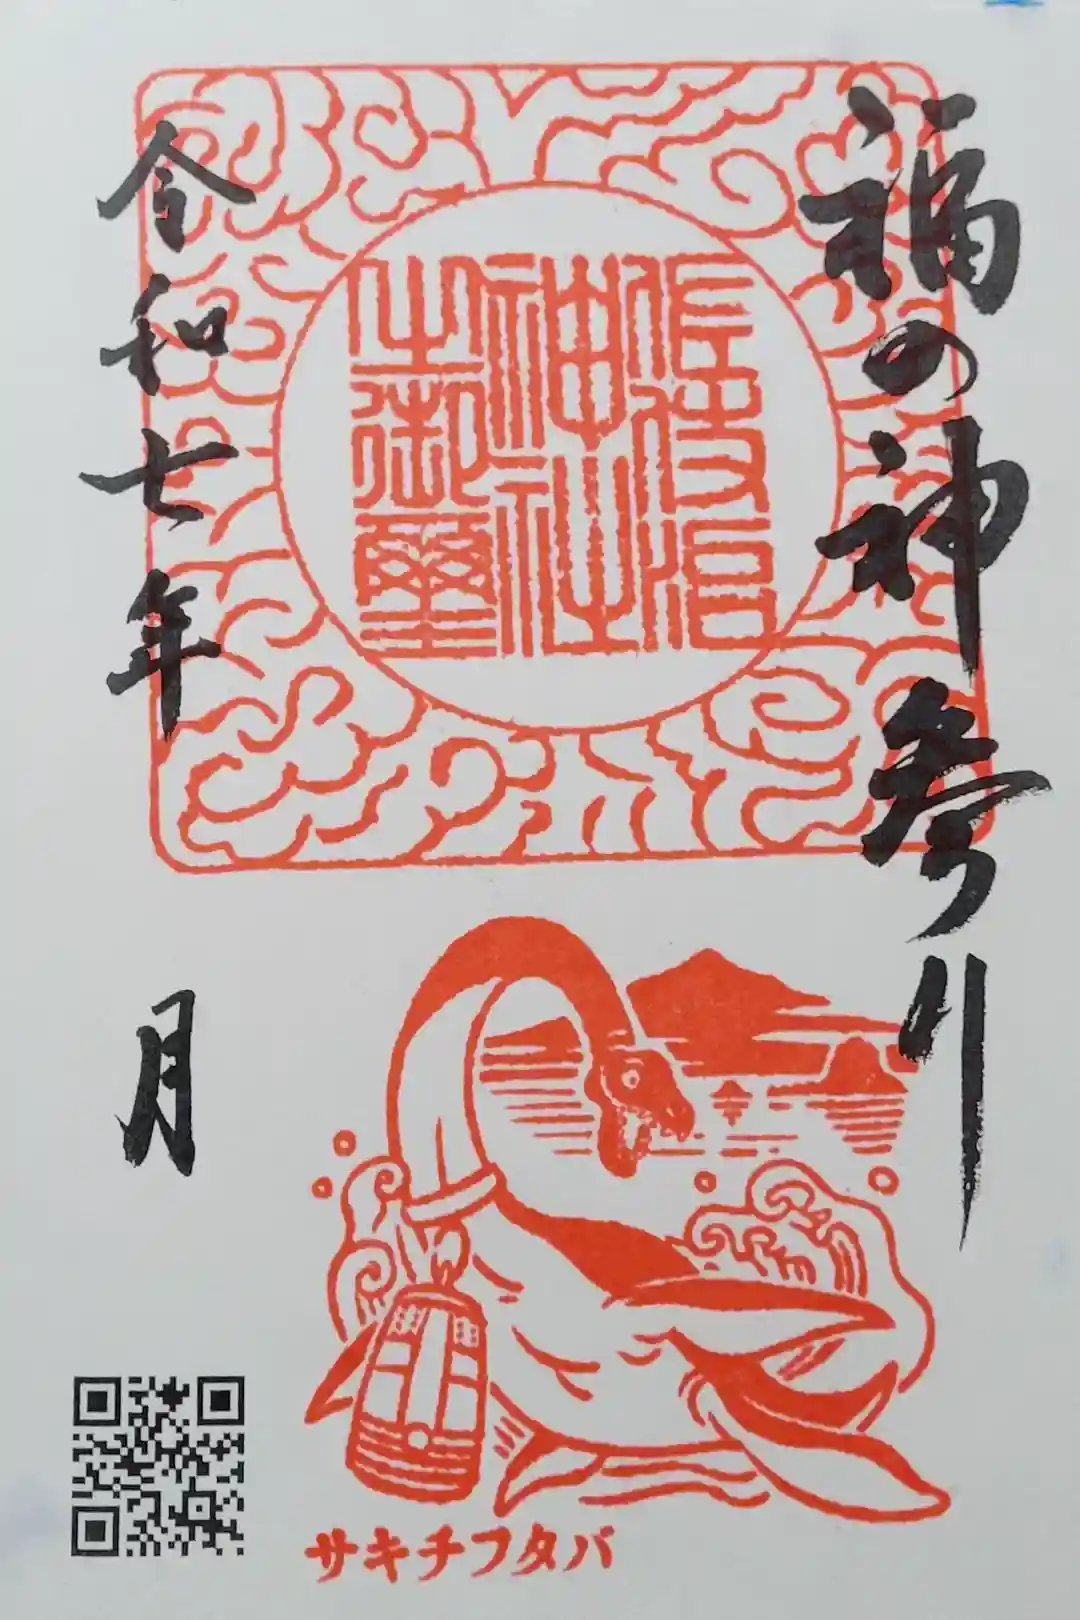 福の神参り
佐伎治
神社
之御璽
令和七年　月
サキチフタバ